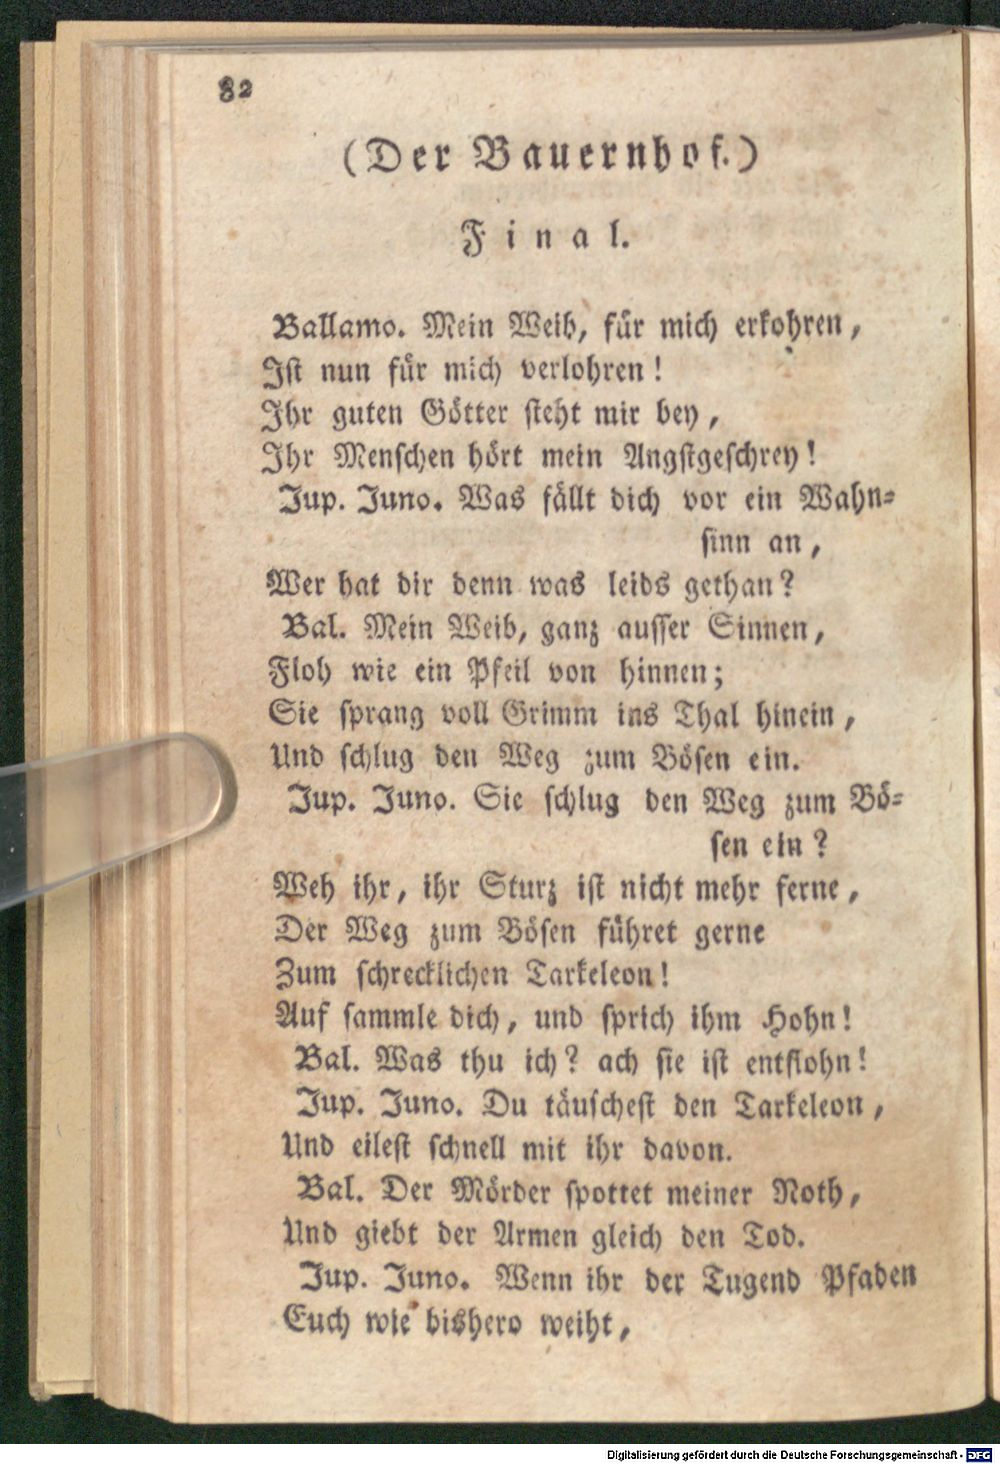 82
(Der Bauernhof.)
Final.
Ballamo. Mein Weib, für mich erkohren,
Ist nun für mich verlohren!
Ihr guten Götter steht mir bey,
Ihr Menschen hört mein Angstgeschrey!
Jup. Juno. Was fällt dich vor ein Wahn-
sinn an,
Wer hat dir denn was leids gethan?
Bal. Mein Weib, ganz ausser Sinnen,
Floh wie ein Pfeil von hinnen;
Sie sprang voll Grimm ins Thal hinein,
Und schlug den Weg zum Bösen ein.
Jup. Juno. Sie schlug den Weg zum Bö-
sen ein?
Weh ihr, ihr Sturz ist nicht mehr ferne,
Der Weg zum Bösen führet gerne
Zum schrecklichen Tarkeleon!
Auf sammle dich, und sprich ihm Hohn!
Bal. Was thu ich? ach sie ist entflohn!
Jup. Juno. Du täuschest den Tarkeleon,
Und eilest schnell mit ihr davon.
Bal. Der Mörder spottet meiner Noth,
Und giebt der Armen gleich den Tod.
Jup. Juno. Wenn ihr der Tugend Pfaden
Euch wie bishero weiht,
Digitalisierung gefördert durch die Deutsche Forschungsgemeinschaft - DFG